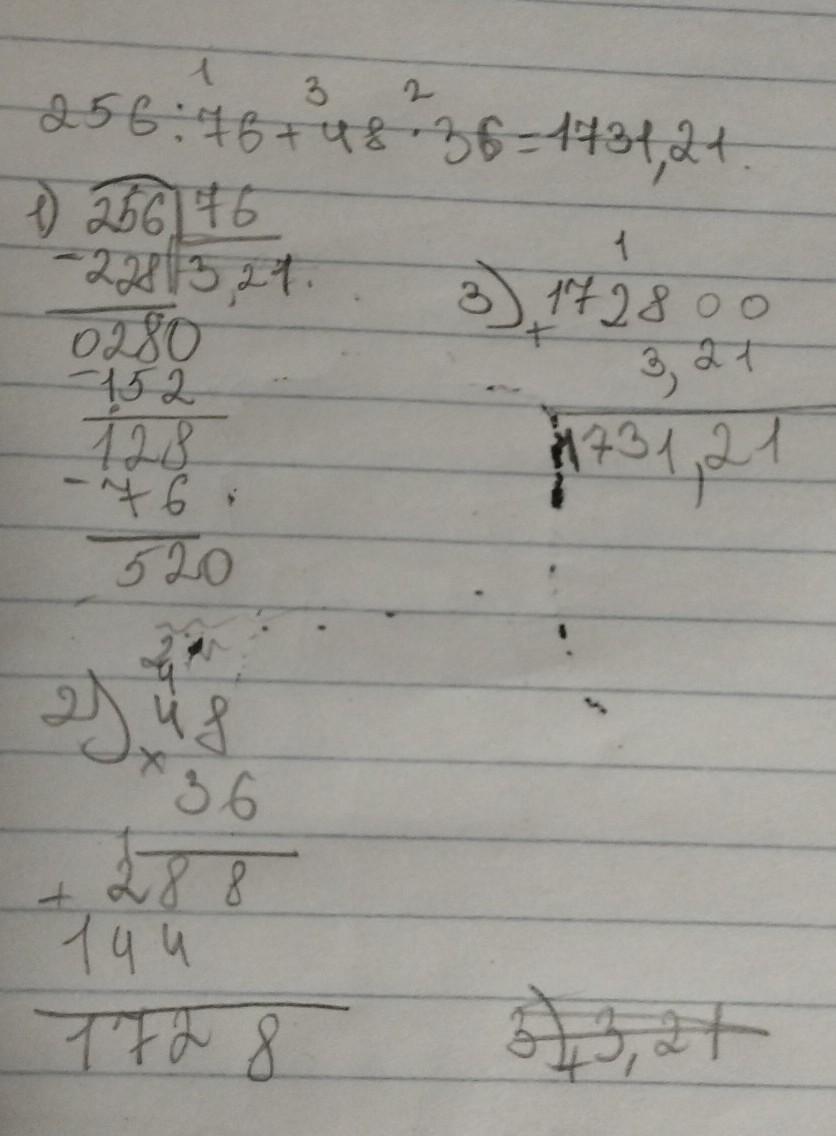 1 3 2
256:76+48·36=1731,21.
1) 256 76
-228 3,21.
0280
-152
128
-76
520
2
4
2) 48
×
36
1
+ 288
144
1728
1
3) 172800
+
3,21
1731,21
3) + 3,21